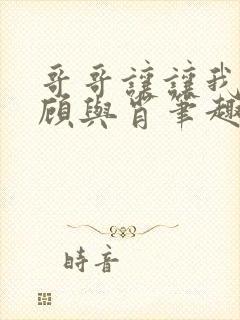 哥哥讓讓我
顧與肖筆趣
時音